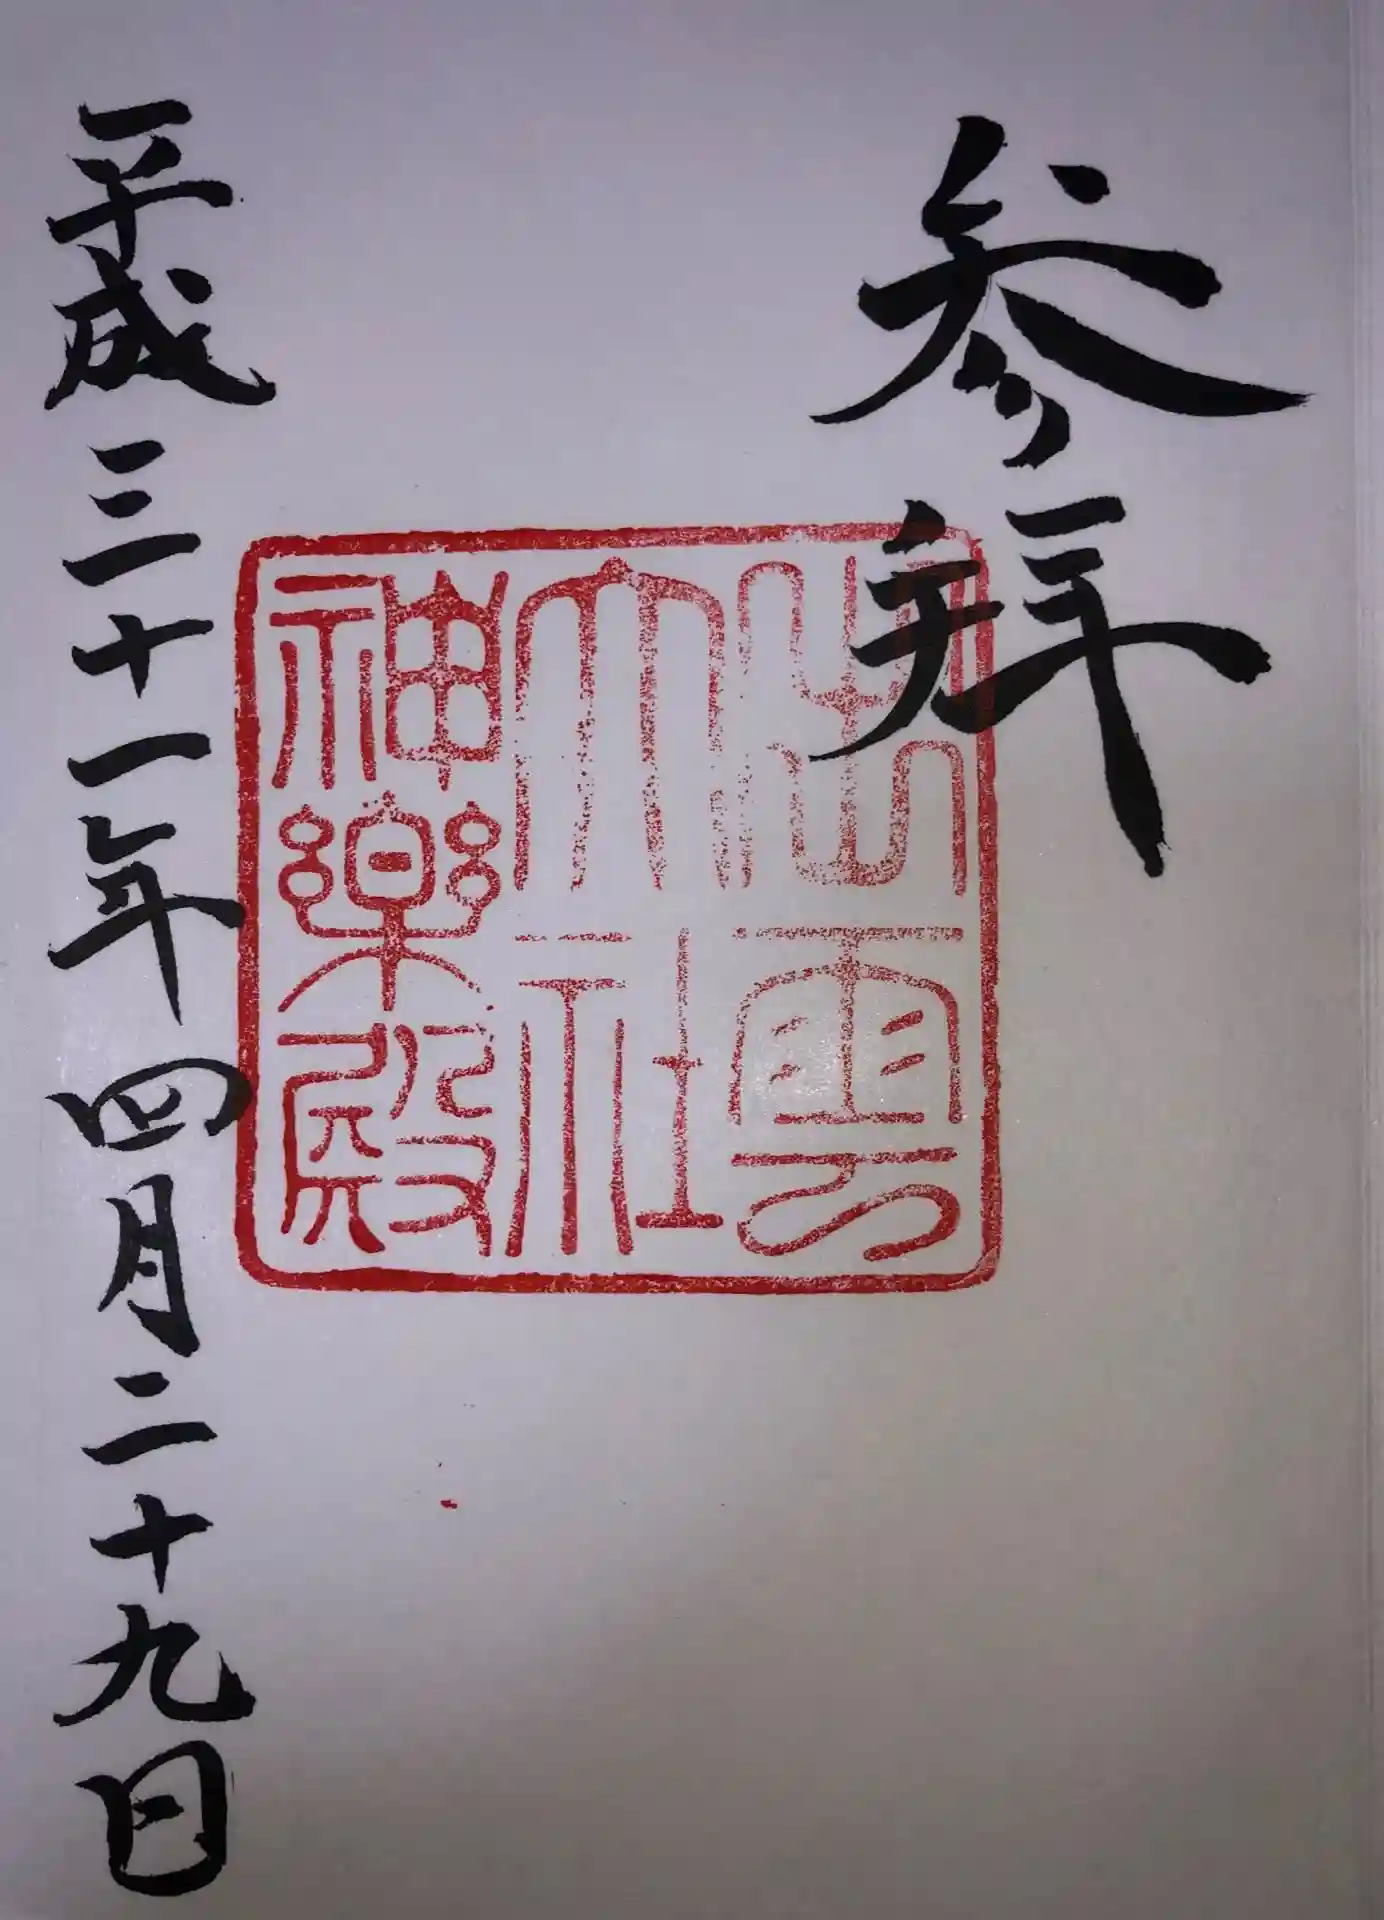 参拜
出雲
大社
神樂殿
平成三十一年四月二十九日